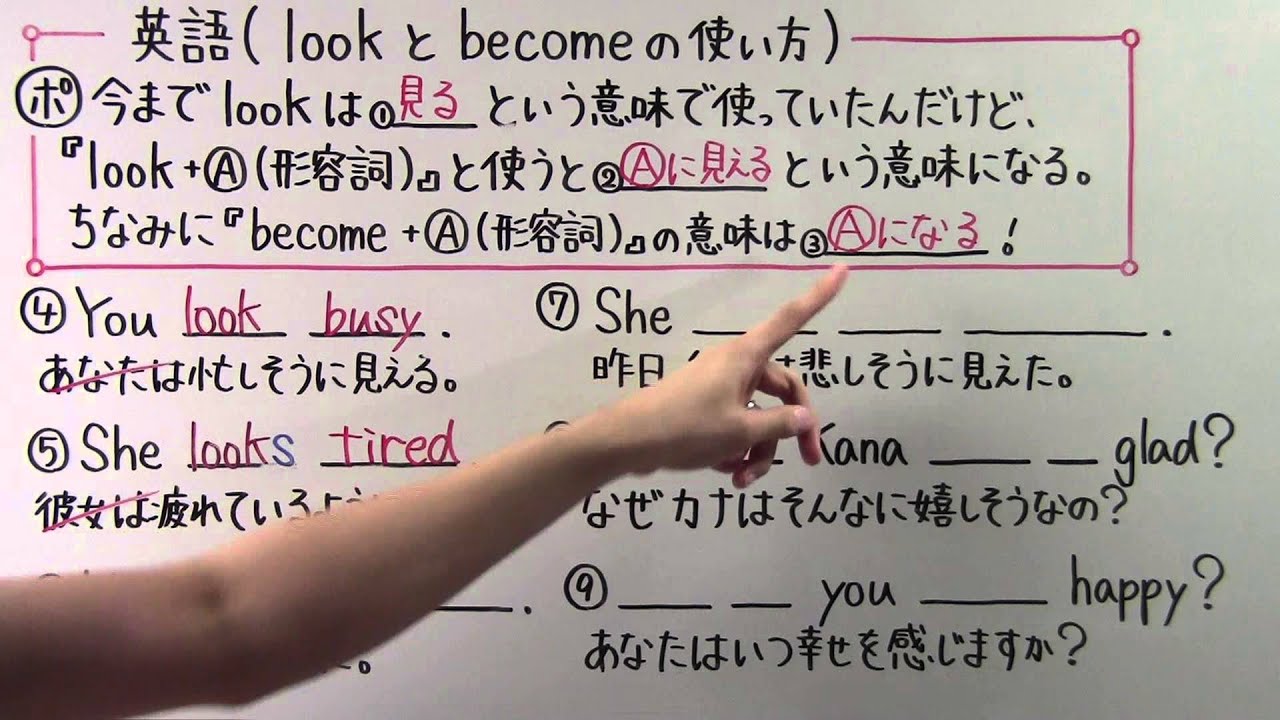 英語(lookとbecomeの使い方)
ポ 今までlookは①見るという意味で使っていたんだけど、
『look+Ⓐ(形容詞)』と使うと②Ⓐに見えるという意味になる。
ちなみに『become+Ⓐ(形容詞)』の意味は③Ⓐになる!
④You look busy.
あなたは忙しそうに見える。
⑤She looks tired
彼女は疲れているよ
.
。
⑦She ___ ___ ___.
昨日 悲しそうに見えた。
Kana ___ ___ glad?
なぜカナはそんなに嬉しそうなの?
⑨___ ___ you ___ happy?
あなたはいつ幸せを感じますか?